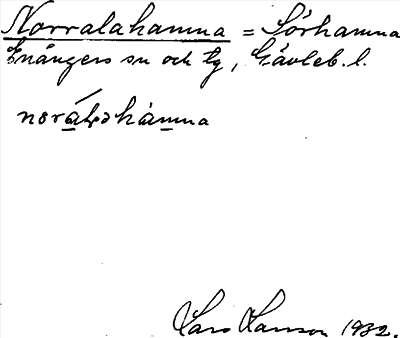 Norralahamna = Sörhamna
Enångers sn och tg, Gävleb. l.
norálahámna
Lars Larsson 1932.